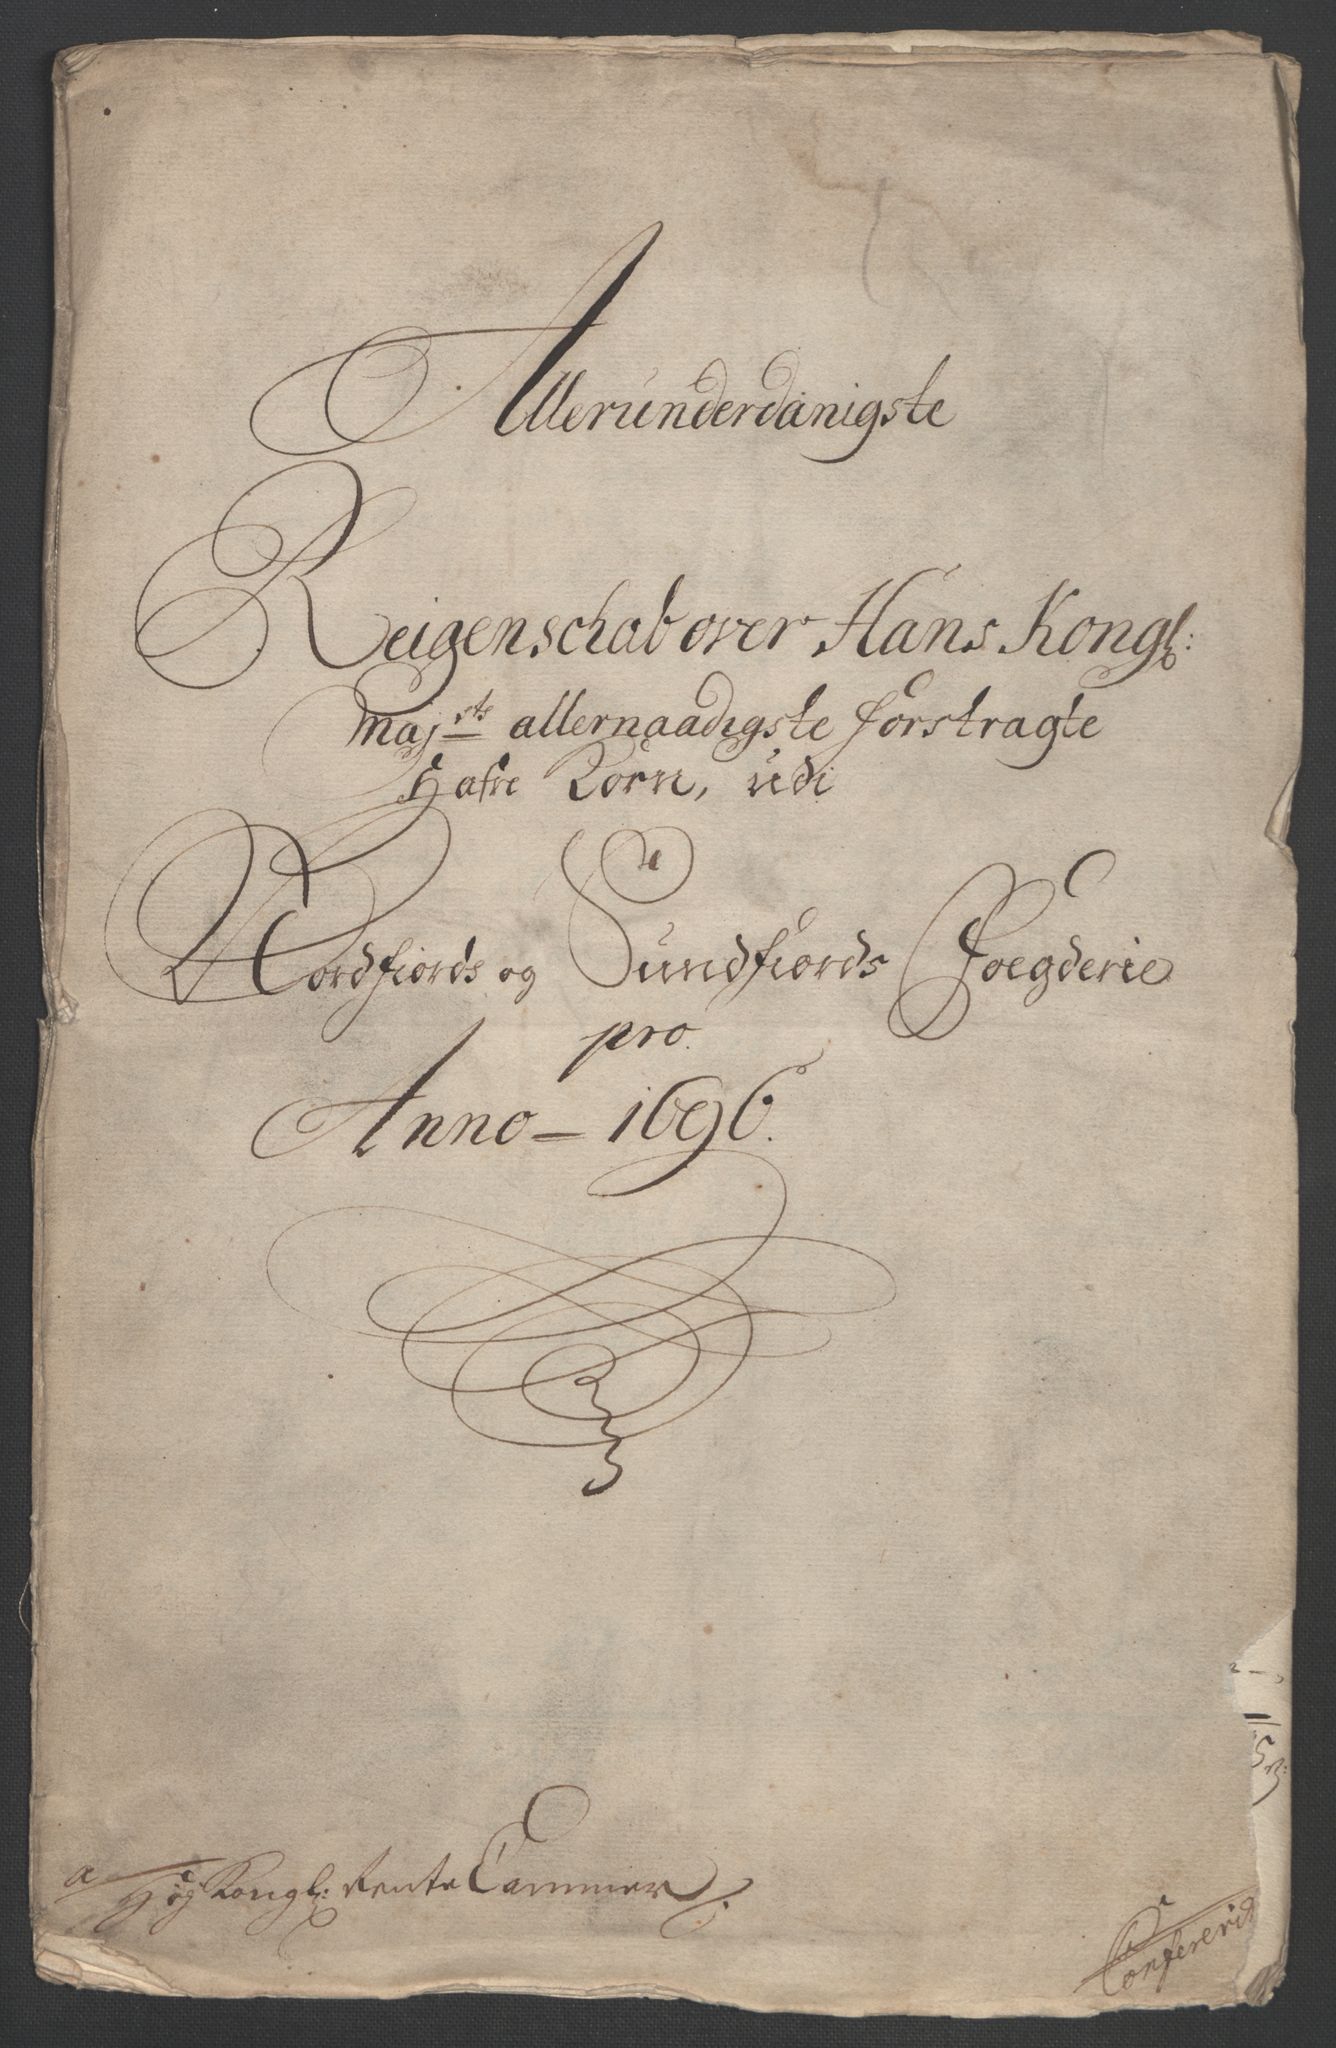 Allerunderdanigste
Reigenschab over Hans Kongl:
Maj:ts allernaadigste forstragte
Hafre Korn, udi
Nordfiords og Sundfiords Foegderie
pro.
Anno - 1696.
Høy Kongl: Rente Cammer
Confererid